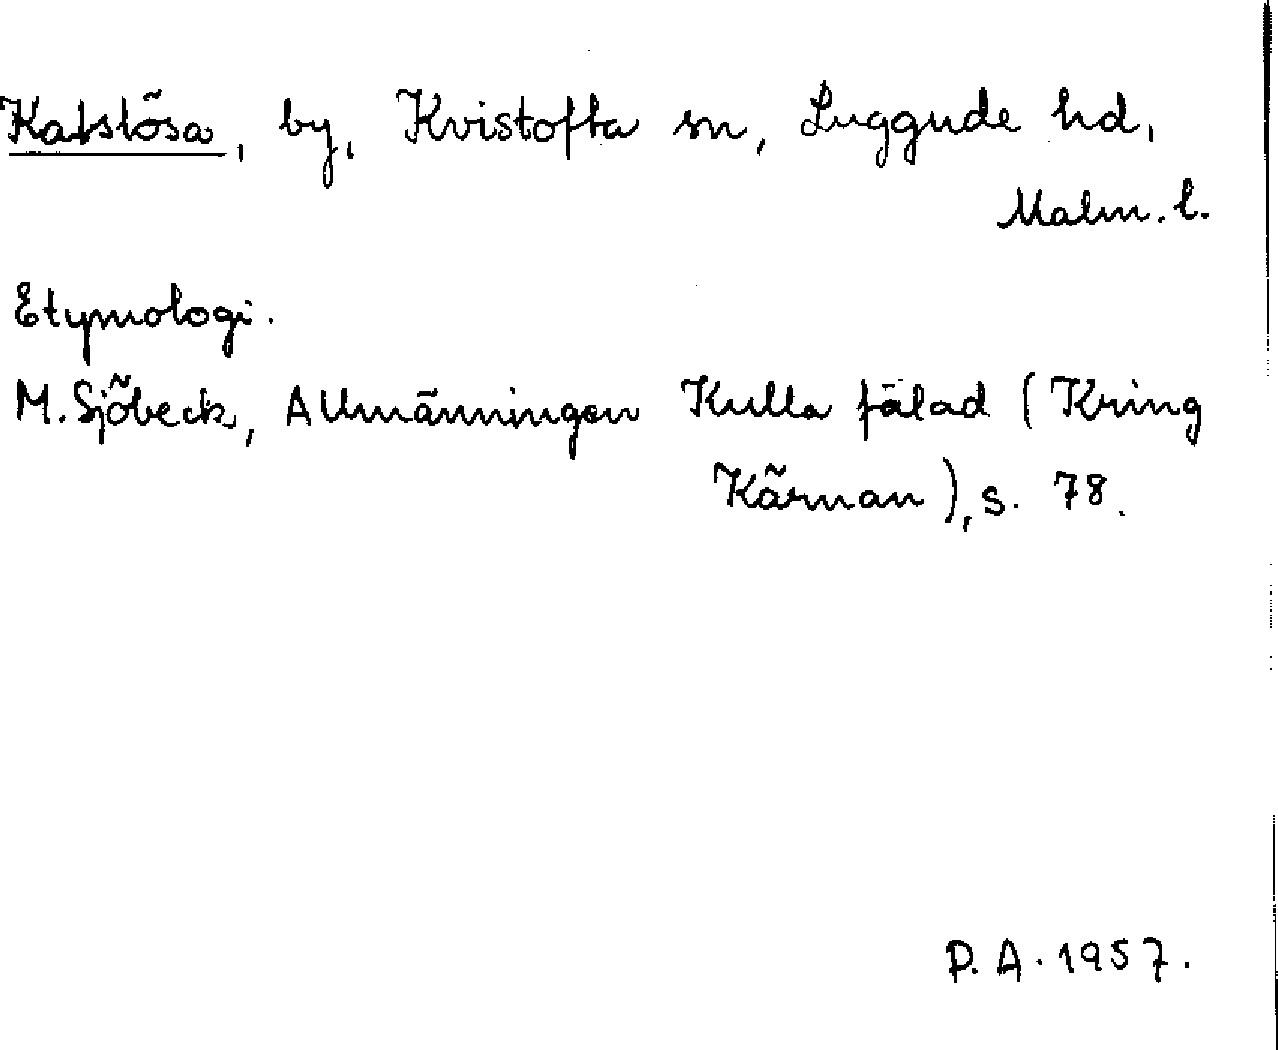 Katslösa, by, Kvistofta sn, Luggude hd,
Malm. l.
Etymologi.
M. Sjöbeck, Allmänningen Kulla fälad (Kring
Kärnan), s. 78.
P. A. 1957.